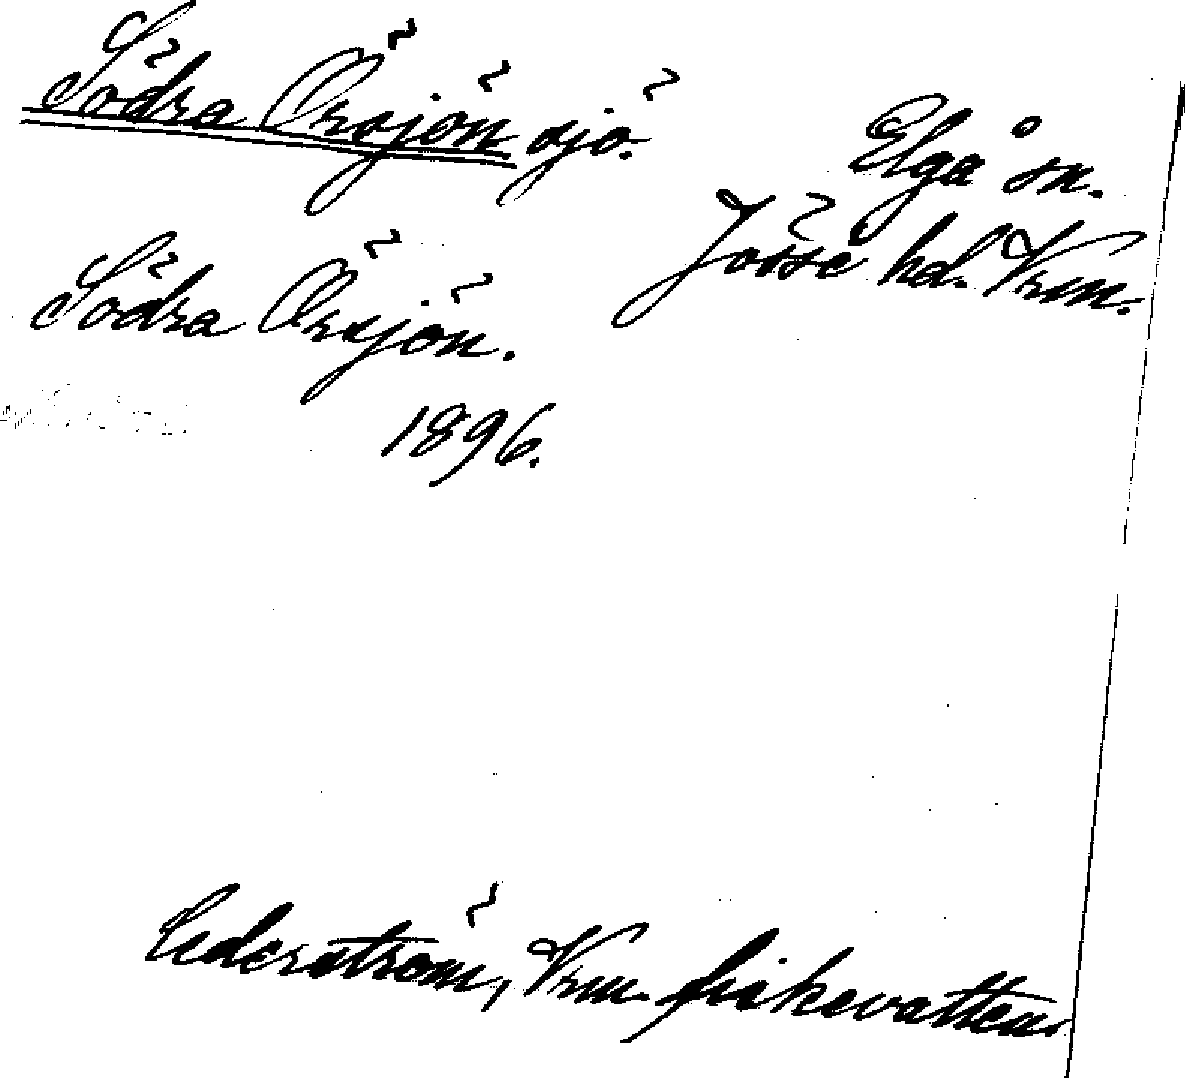 Södra Örsjön sjö.
Elgå sn.
Jösse hd. Vrm.
Södra Örsjön.
1896.
Cederström, Vrm. fiskevatten.